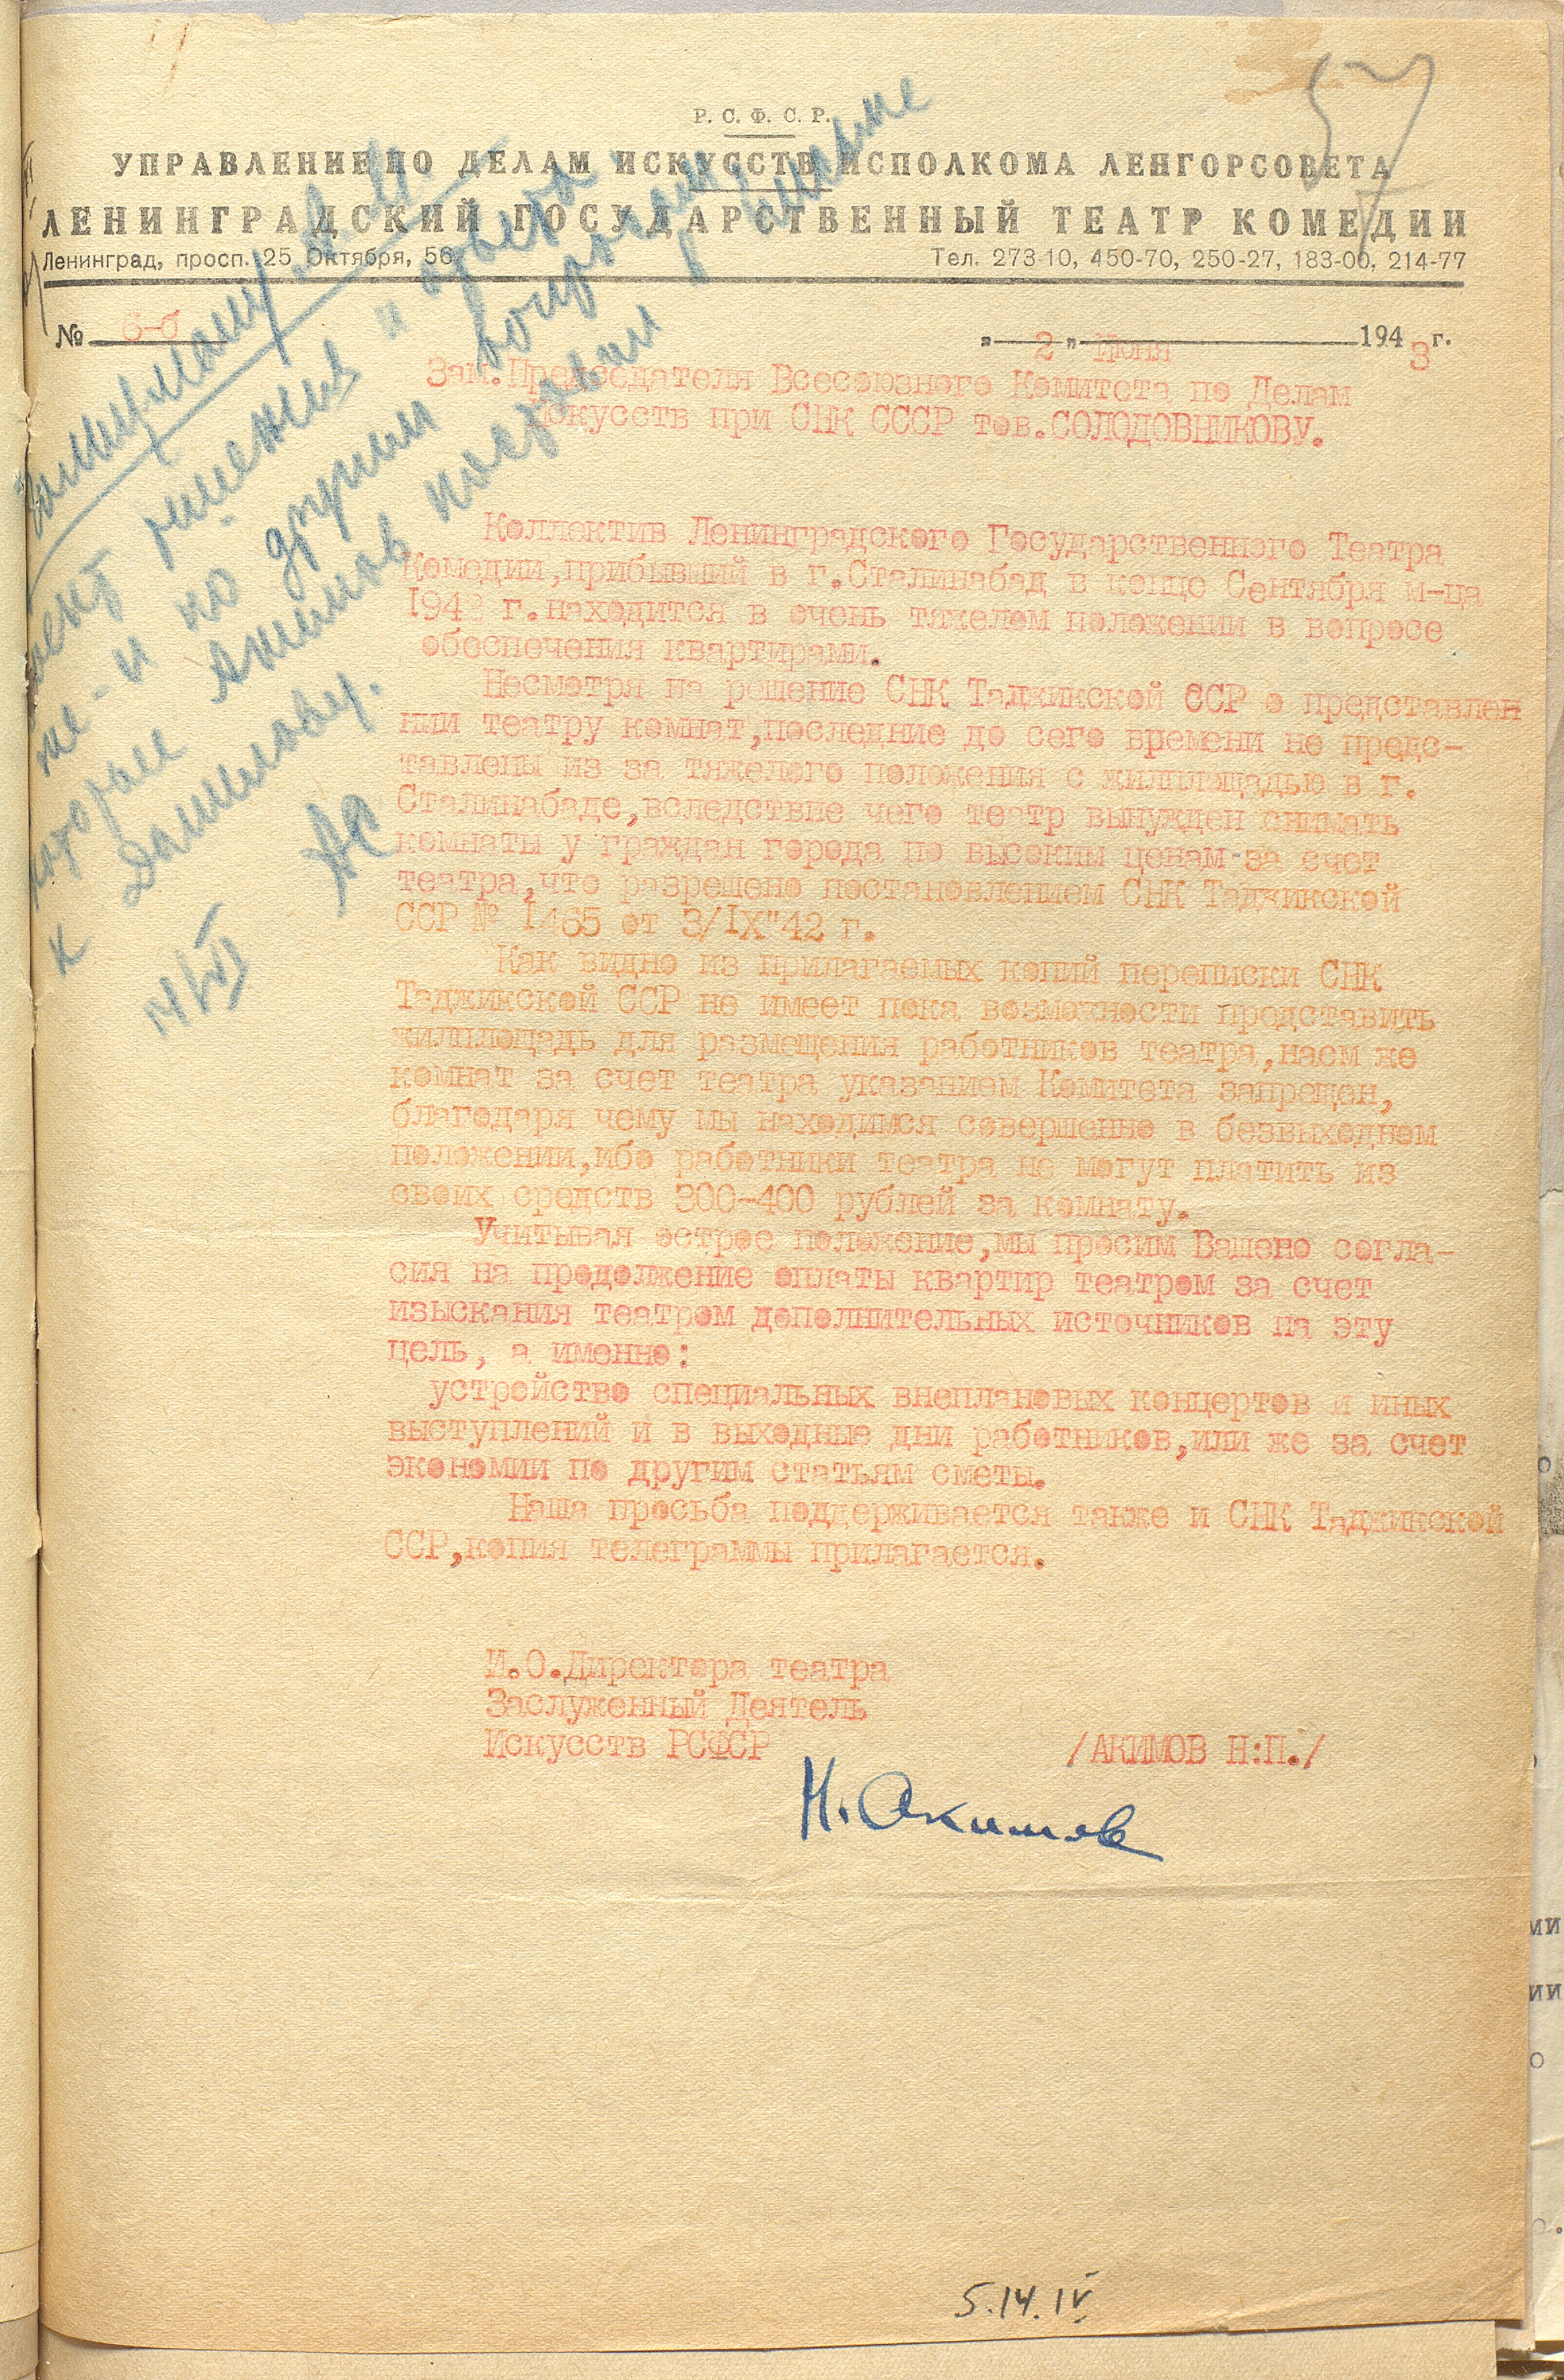 57
Р. С. Ф. С. Р.
УПРАВЛЕНИЕ ПО ДЕЛАМ ИСКУССТВ ИСПОЛКОМА ЛЕНГОРСОВЕТА
ЛЕНИНГРАДСКИЙ ГОСУДАРСТВЕННЫЙ ТЕАТР КОМЕДИИ
Ленинград, просп. 25 Октября, 56
Тел. 273-10, 450-70, 250-27, 183-00, 214-77
№ 6-б
„ 2 " Июня 1943 г.
Зам.Председателя Всесоюзного Комитета по Делам
Искусств при СНК СССР тов.СОЛОДОВНИКОВУ.
Коллектив Ленинградского Государственного Театра
Комедии,прибывший в г.Сталинабад в конце Сентября м-ца
1942 г.находится в очень тяжелом положении в вопросе
обеспечения квартирами.
Несмотря на решение СНК Таджикской ССР о представлен
нии театру комнат,последние до сего времени не предс-
тавлены из за тяжелого положения с жилплощадью в г.
Сталинабаде,вследствие чего театр вынужден снимать
комнаты у граждан города по высоким ценам за счет
театра,что разрешено постановлением СНК Таджикской
ССР № 1465 от 3/IX"42 г.
Как видно из прилагаемых копий переписки СНК
Таджикской ССР не имеет пока возможности представить
жилплощадь для размещения работников театра,наем же
комнат за счет театра указанием Комитета запрещен,
благодаря чему мы находимся совершенно в безвыходном
положении,ибо работники театра не могут платить из
своих средств 300-400 рублей за комнату.
Учитывая острое положение,мы просим Вашено согла-
сия на продолжение оплаты квартир театром за счет
изыскания театром дополнительных источников на эту
цель, а именно:
устройство специальных внеплановых концертов и иных
выступлений и в выходные дни работников,или же за счет
экономии по другим статьям сметы.
Наша просьба поддерживается также и СНК Таджикской
ССР,копия телеграммы прилагается.
И.О.Директора театра
Заслуженный Деятель
Искусств РСФСР /АКИМОВ Н:П./
Н. Акимов
решения и ответа
и по другим вопросам
которые Акимов поставил в письме
к Данилову.
5.14.IV